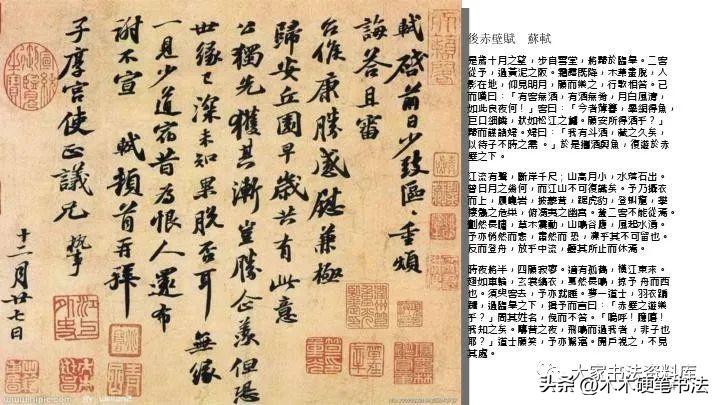 軾啓前日少致區〻重煩
誨荅且審
台候康勝感慰兼極
歸安丘園早歲共有此意
公獨先獲其漸豈勝企羨但恐
世緣已深未知果脫否耳無緣
一見少道宿昔為恨人還布
謝不宣 軾頓首再拜
子厚宮使正議兄 執事
十二月廿七日
後赤壁賦 蘇軾
是歲十月之望，步自雪堂，將歸於臨皋。二客
從予，過黃泥之阪。霜露既降，木葉盡脫，人
影在地，仰見明月，顧而樂之，行歌相答。已
而嘆曰：「有客無酒，有酒無肴，月白風清，
如此良夜何！」客曰：「今者薄暮，舉網得魚，
巨口細鱗，狀如松江之鱸。顧安所得酒乎？」
歸而謀諸婦。婦曰：「我有斗酒，藏之久矣，
以待子不時之需。」於是攜酒與魚，復遊於赤
壁之下。
江流有聲，斷岸千尺；山高月小，水落石出。
曾日月之幾何，而江山不可復識矣。予乃攝衣
而上，履巉岩，披蒙茸，踞虎豹，登虯龍，攀
棲鶻之危巢，俯馮夷之幽宮。蓋二客不能從焉。
劃然長嘯，草木震動，山鳴谷應，風起水湧。
予亦悄然而悲，肅然而恐，凜乎其不可留也。
反而登舟，放乎中流，聽其所止而休焉。
時夜將半，四顧寂寥。適有孤鶴，橫江東來。
翅如車輪，玄裳縞衣，戛然長鳴，掠予舟而西
也。須臾客去，予亦就睡。夢一道士，羽衣蹁
躚，過臨皋之下，揖予而言曰：「赤壁之遊樂
乎？」問其姓名，俛而不答。「嗚呼！噫嘻！
我知之矣。疇昔之夜，飛鳴而過我者，非子也
耶？」道士顧笑，予亦驚寤。開戶視之，不見
其處。
大家书法资料库
头条 @木木硬笔书法